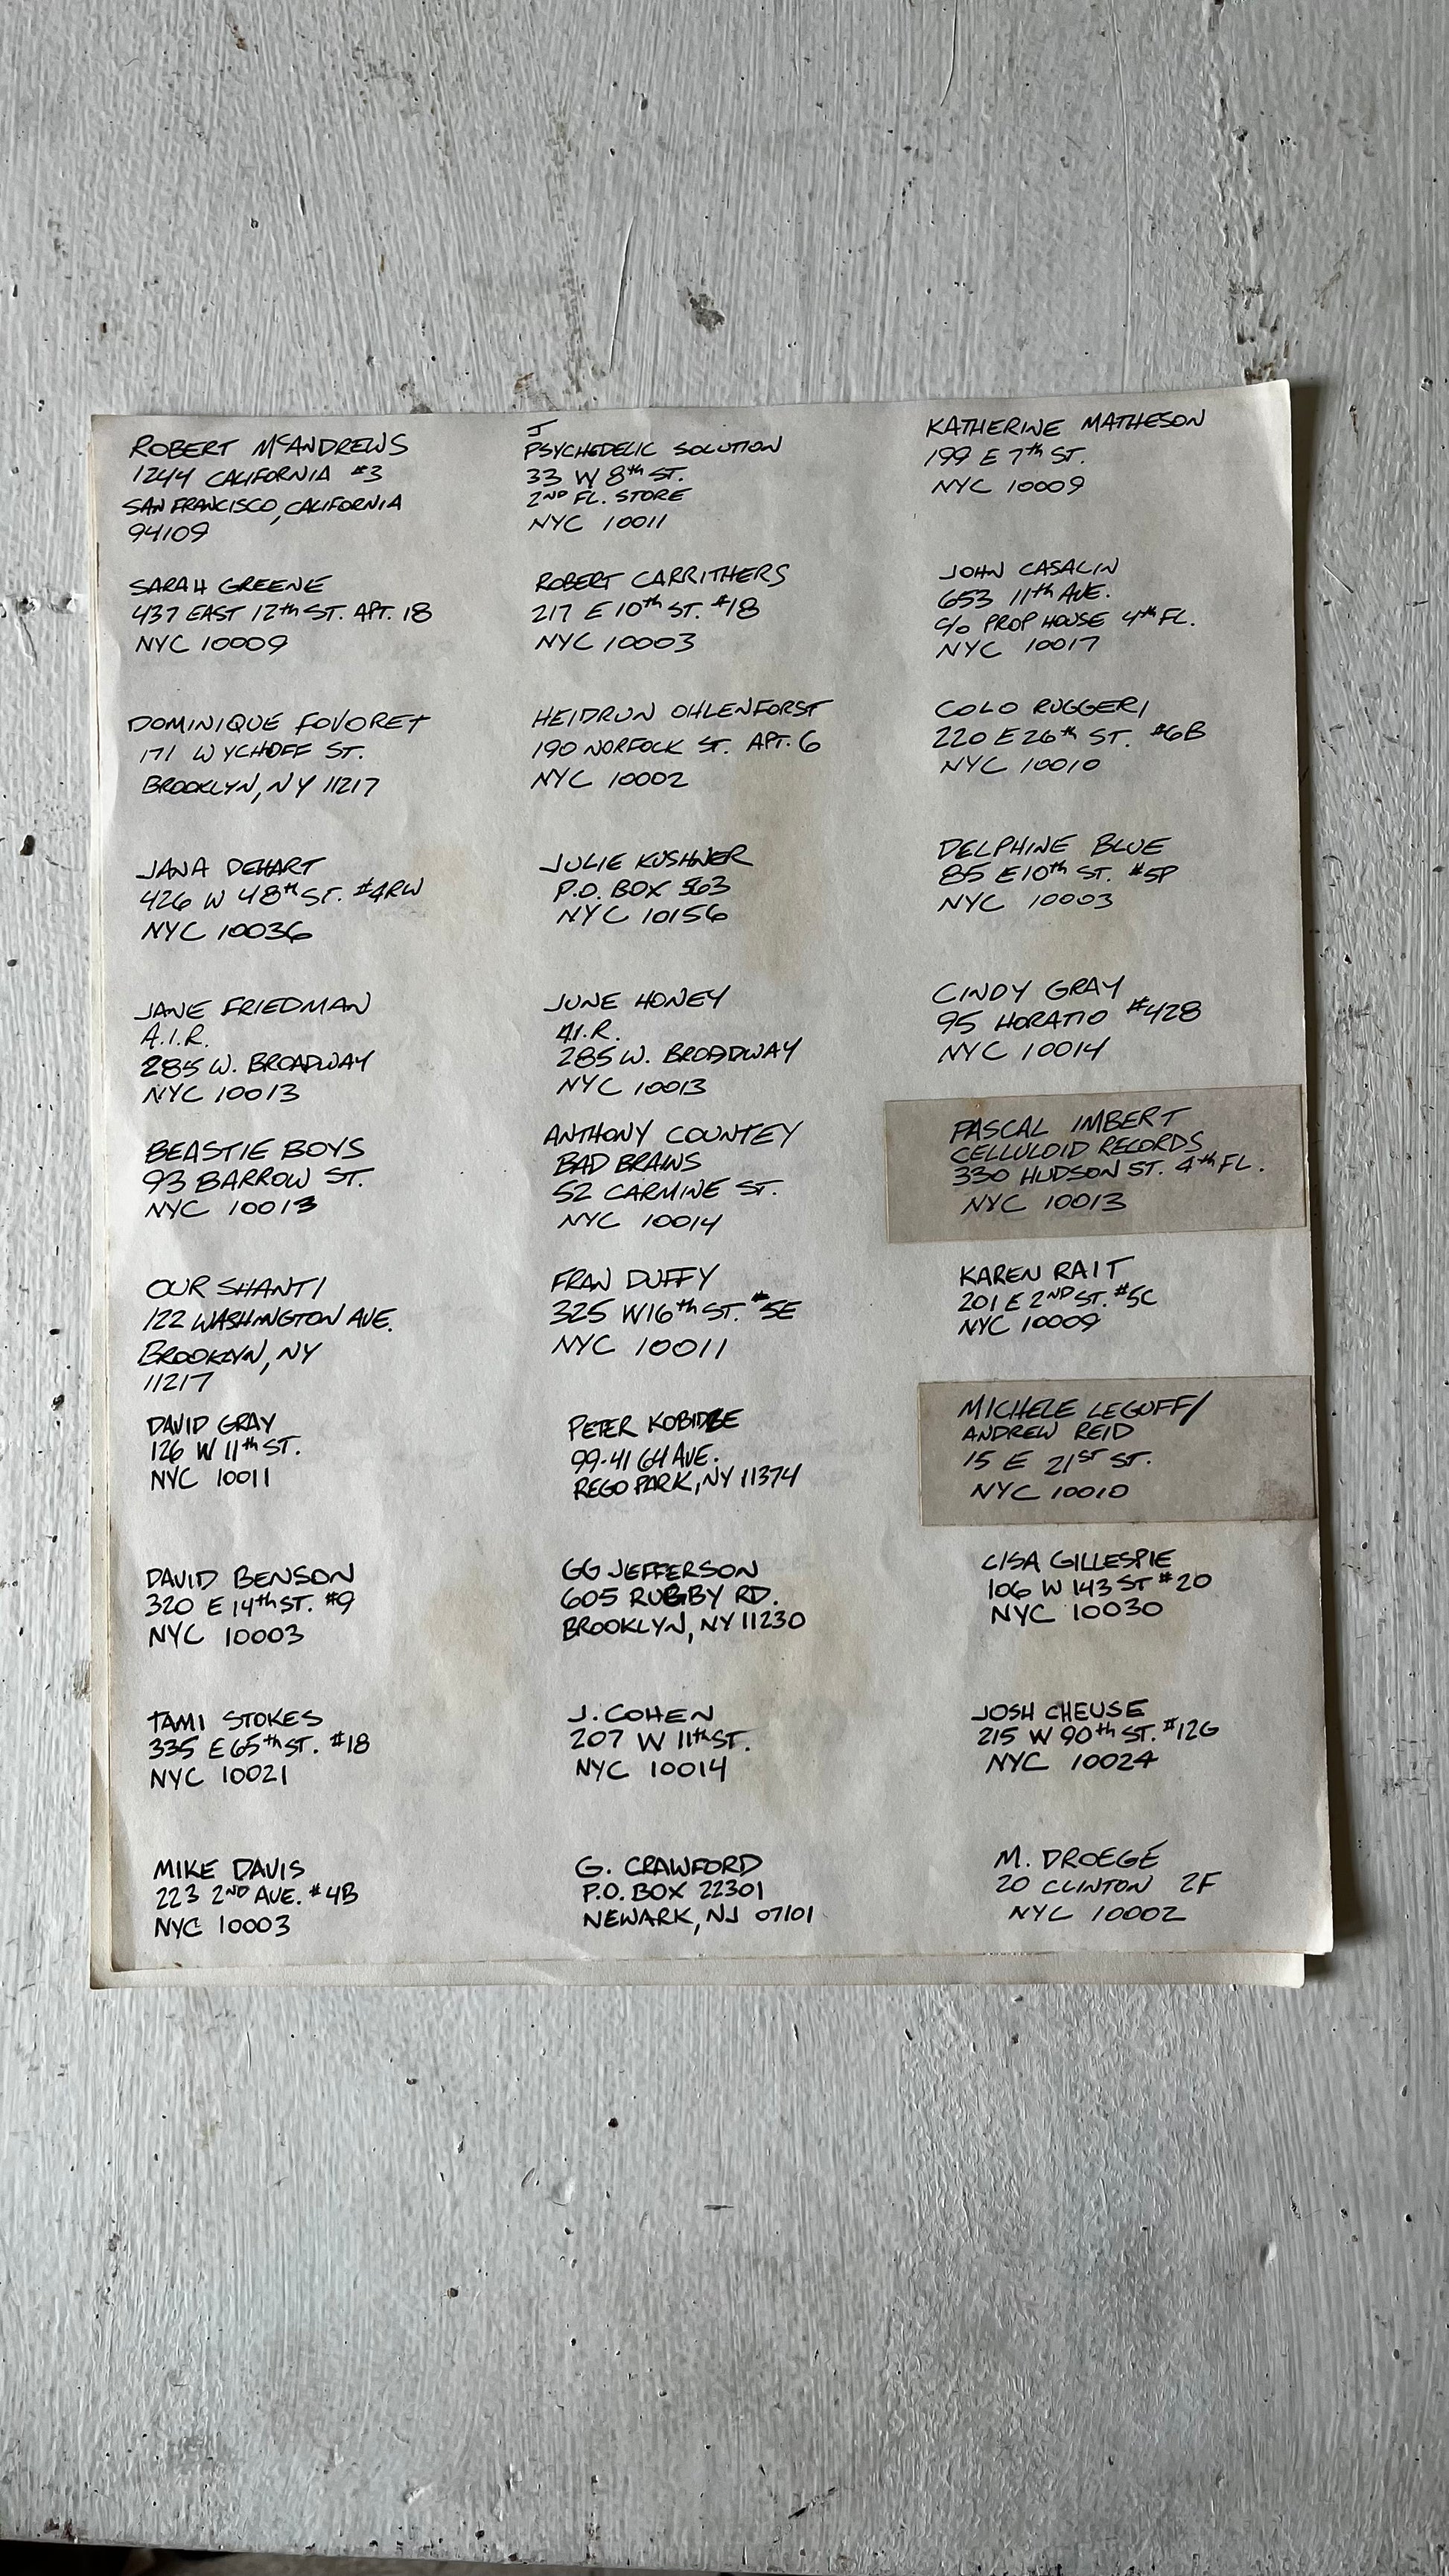 ROBERT McANDREWS
1244 CALIFORNIA #3
SAN FRANCISCO, CALIFORNIA
94109
SARAH GREENE
437 EAST 12th ST. APT. 18
NYC 10009
DOMINIQUE FOVORET
171 WYCHOFF ST.
BROOKLYN, NY 11217
JANA DEHART
426 W 48th ST. #4RW
NYC 10036
JANE FRIEDMAN
A.I.R.
285 W. BROADWAY
NYC 10013
BEASTIE BOYS
93 BARROW ST.
NYC 10013
OUR SHANTI
122 WASHINGTON AVE.
BROOKLYN, NY
11217
DAVID GRAY
126 W 11th ST.
NYC 10011
DAVID BENSON
320 E 14th ST. #9
NYC 10003
TAMI STOKES
335 E 65th ST. #18
NYC 10021
MIKE DAVIS
223 2ND AVE. #4B
NYC 10003
J
PSYCHEDELIC SOLUTION
33 W 8th ST.
2ND FL. STORE
NYC 10011
ROBERT CARRITHERS
217 E 10th ST. #18
NYC 10003
HEIDRUN OHLENFORST
190 NORFOLK ST. APT. 6
NYC 10002
JULIE KUSHNER
P.O. BOX 563
NYC 10156
JUNE HONEY
A.I.R.
285 W. BROADWAY
NYC 10013
ANTHONY COUNTEY
BAD BRAINS
52 CARMINE ST.
NYC 10014
FRAN DUFFY
325 W 16th ST. #5E
NYC 10011
PETER
99-41 64 AVE.
REGO PARK, NY 11374
GG JEFFERSON
605 RUGBY RD.
BROOKLYN, NY 11230
J. COHEN
207 W 11th ST.
NYC 10014
G. CRAWFORD
P.O. BOX 22301
NEWARK, NJ 07101
KATHERINE MATHESON
199 E 7th ST.
NYC 10009
JOHN CASALIN
653 11th AVE.
c/o PROP HOUSE 4th FL.
NYC 10017
COLO RUGGERI
220 E 26th ST. #6B
NYC 10010
DELPHINE BLUE
85 E 10th ST. #5P
NYC 10003
CINDY GRAY
95 HORATIO #428
NYC 10014
PASCAL IMBERT
CELLULOID RECORDS
330 HUDSON ST. 4th FL.
NYC 10013
KAREN RAIT
201 E 2ND ST. #5C
NYC 10009
MICHELE LEGUFF/
ANDREW REID
15 E 21ST ST.
NYC 10010
LISA GILLESPIE
106 W 143 ST #20
NYC 10030
JOSH CHEUSE
215 W 90th ST. #12G
NYC 10024
M. DROEGE
20 CLINTON 2F
NYC 10002